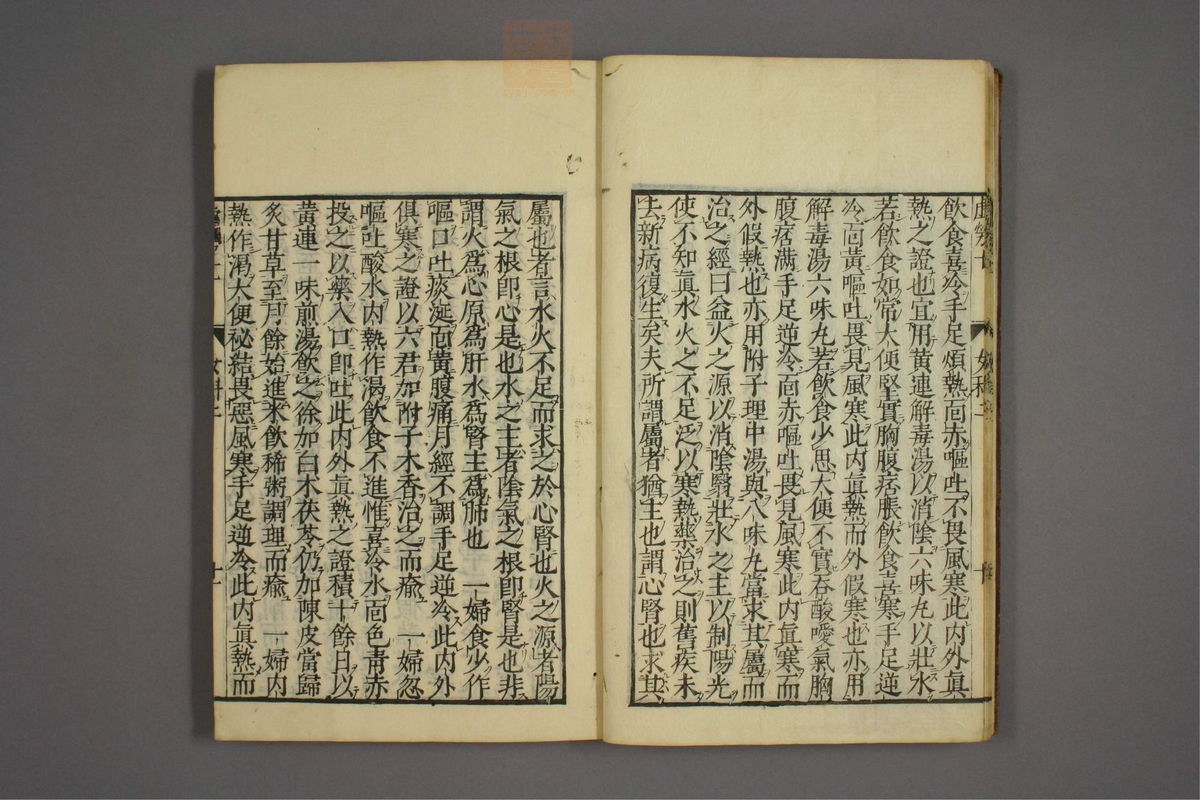 飲食喜冷手足煩熱靣赤嘔吐不畏風寒此内外眞
熱之證也宜用黄連解毒湯以消陰六味丸以壯水
若飲食如常大便堅實胸腹痞脹飲食喜寒手足逆
冷靣黄嘔吐畏見風寒此内眞熱而外假寒也亦用
解毒湯六味丸若飲食少思大便不實吞酸噯氣胸
腹痞满手足逆冷靣赤嘔吐畏見風寒此内眞寒而
外假熱也亦用附子理中湯與八味丸當求其屬而
治之經曰益火之源以消陰翳壯水之主以制陽光
使不知眞水火之不足泛以寒熱藥治之則舊疾未
去新病復生矣夫所謂屬者猶主也謂心腎也求其
女科二
屬也者言水火不足而求之於心腎也火之源者陽
氣之根卽心是也水之主者陰氣之根卽腎是也非
謂火爲心原爲肝水爲腎主爲肺也 一婦食少作
嘔口吐痰涎靣黄腹痛月經不調手足逆冷此内外
俱寒之證以六君加附子木香治之而瘉 一婦忽
嘔吐酸水内熱作渴飲食不進惟喜冷水靣色青赤
投之以藥入口卽吐此内外眞熱之證積十餘日以
黄連一味煎湯飲之徐加白术茯苓仍加陳皮當歸
炙甘草至月餘始進米飲稀粥調理而瘉 一婦内
熱作渴大便秘結畏惡風寒手足逆冷此内眞熱而